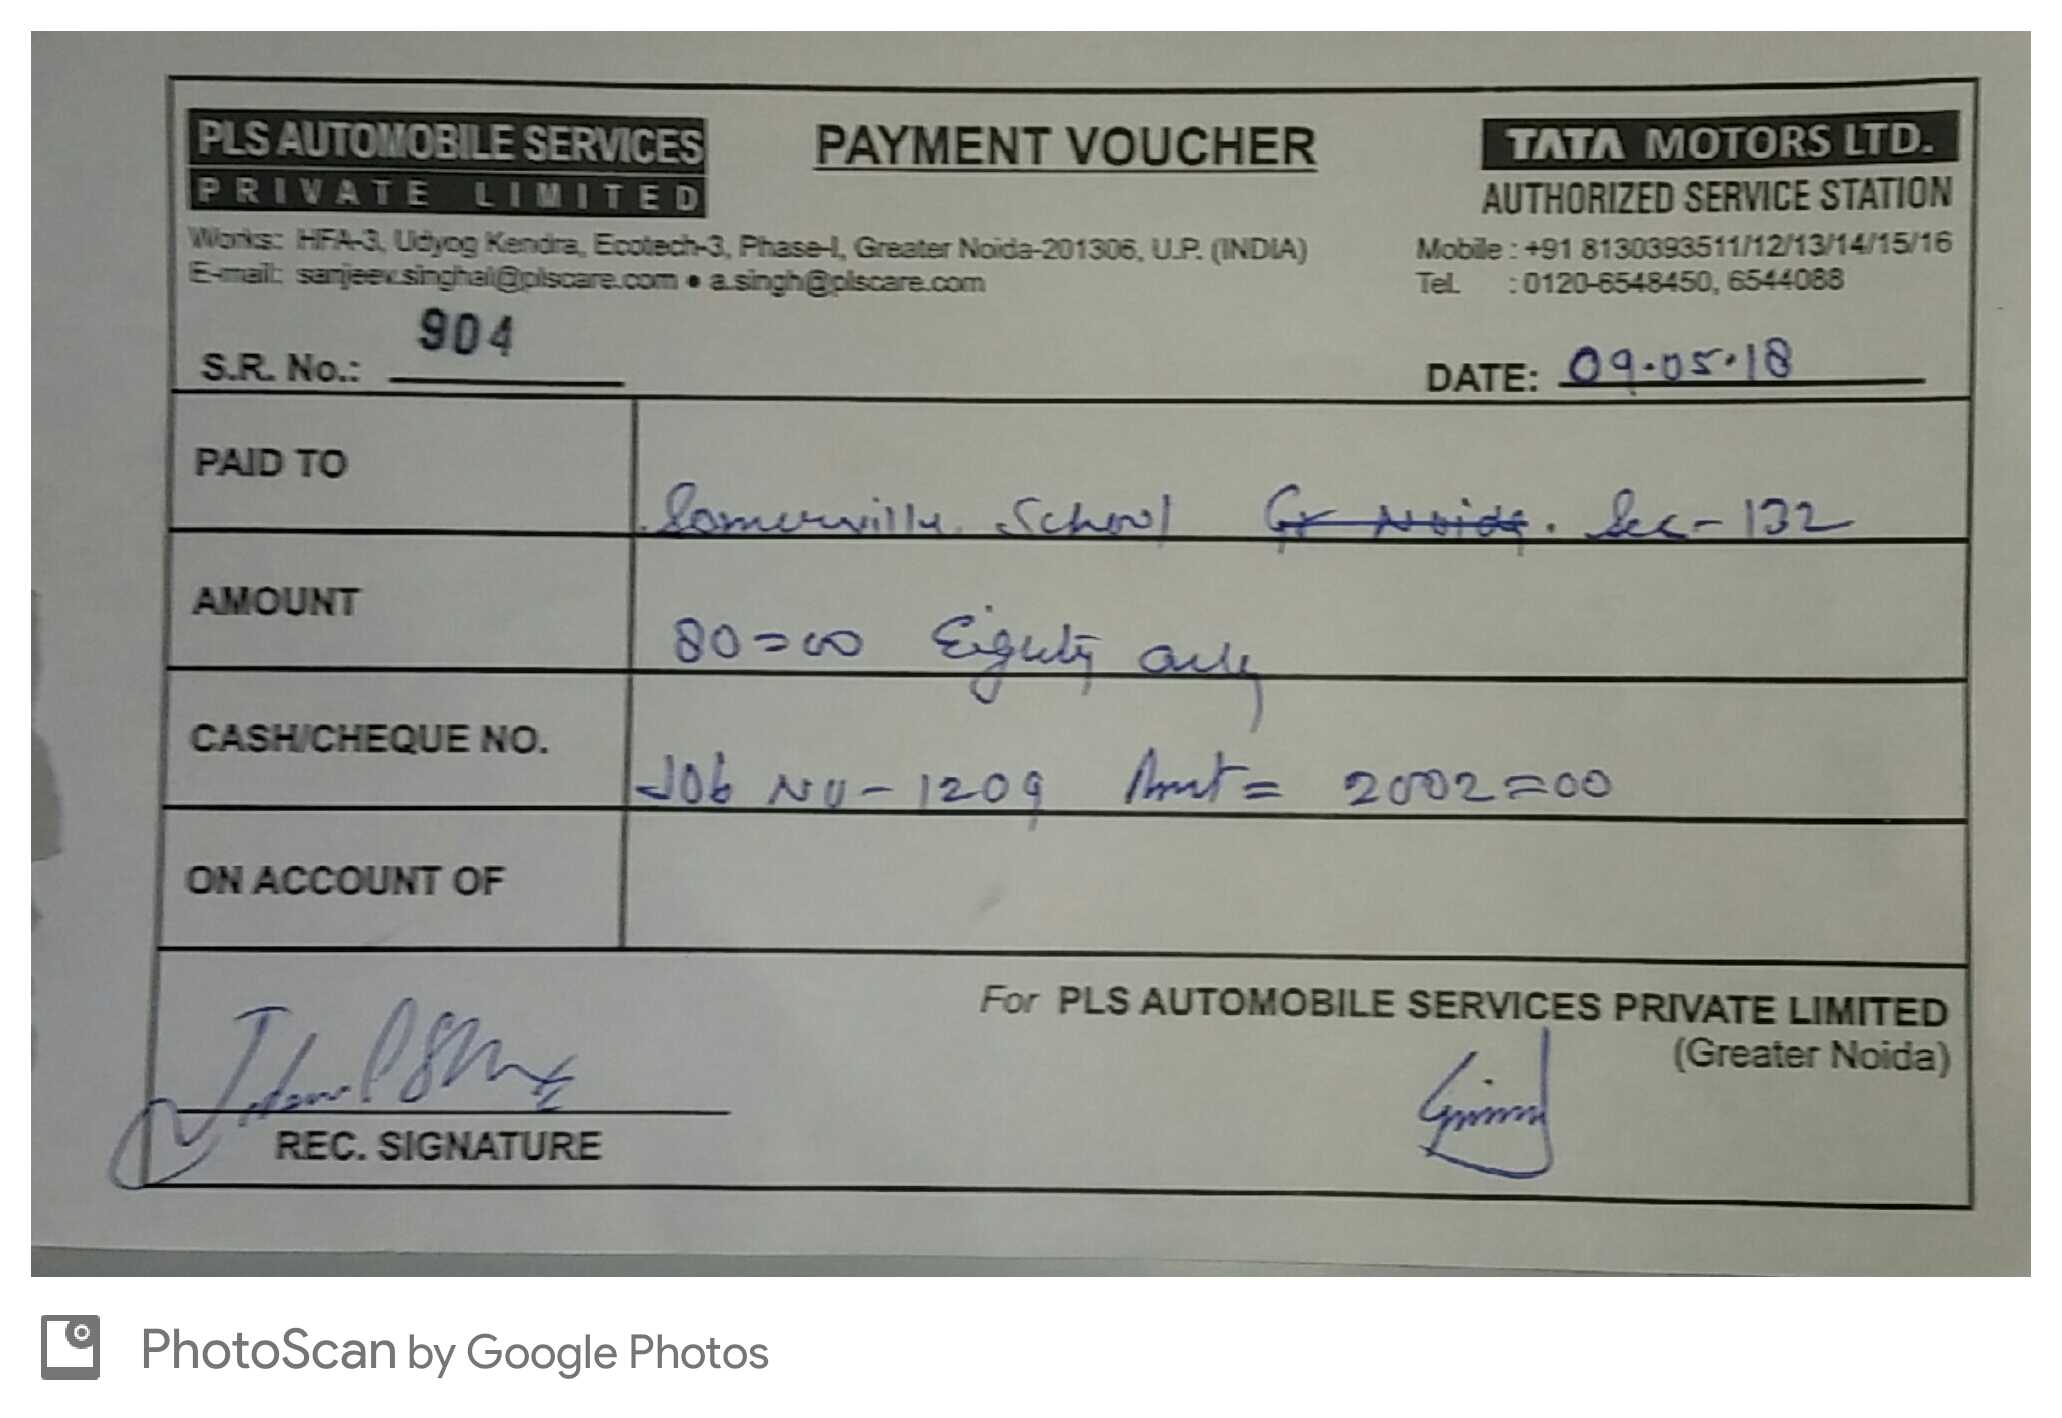 PLS AUTOMOBILE SERVICES
PRIVATE LIMITED
PAYMENT VOUCHER
TATA MOTORS LTD.
AUTHORIZED SERVICE STATION
Works: HFA-3, Udyog Kendra, Ecotech-3, Phase-I, Greater Noida-201306, U.P. (INDIA)
E-mail: sanjeev.singhal@plscare.com • a.singh@plscare.com
Mobile : +91 8130393511/12/13/14/15/16
Tel. : 0120-6548450, 6544088
S.R. No.: 904
DATE: 09.05.18
PAID TO Somerville School Gr Noida. Sec-132
AMOUNT 80=00 Eighty only
CASH/CHEQUE NO. Job No-1209 Amt= 2002=00
ON ACCOUNT OF
For PLS AUTOMOBILE SERVICES PRIVATE LIMITED
(Greater Noida)
REC. SIGNATURE
PhotoScan by Google Photos